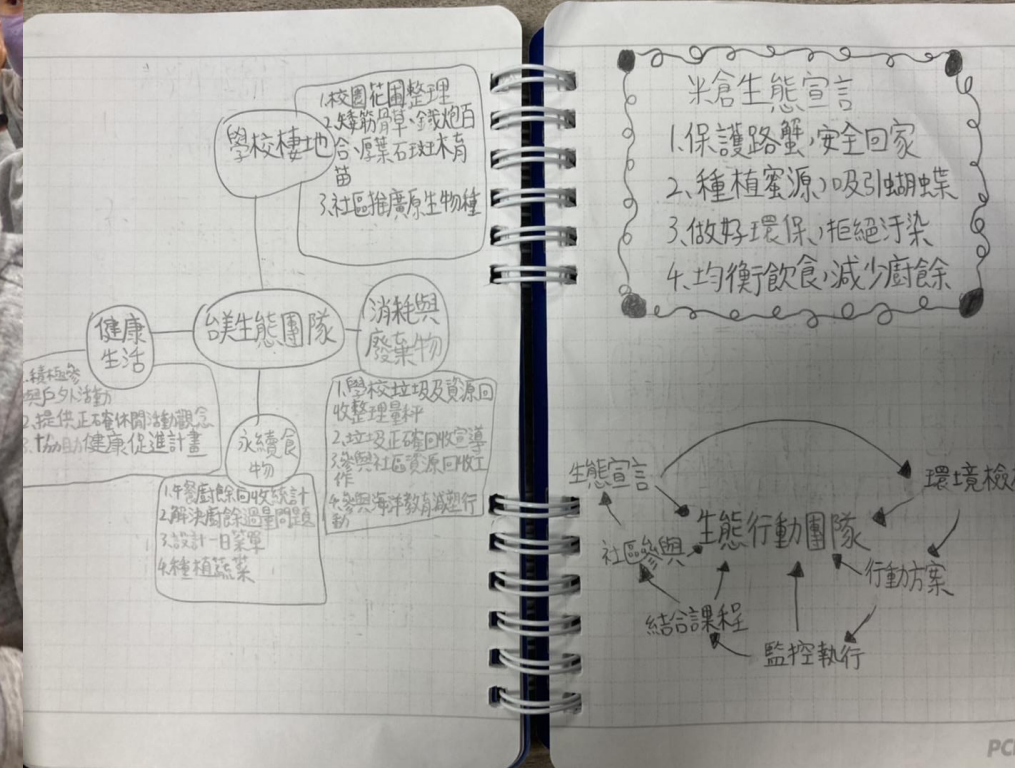 學校棲地
1.校園花圃整理
2.矮筋骨草、鐵炮百
合、厚葉石斑木育
苗
3.社區推廣原生物種
台美生態團隊
健康
生活
1.積極參
與戶外活動
2.提供正確休閒活動觀念
3.協助健康促進計畫
消耗與
廢棄物
1.學校垃圾及資源回
收整理量秤
2.垃圾正確回收宣導
3.參與社區資源回收工
作
4.參與海洋教育減塑行
動
永續食
物
1.午餐廚餘回收統計
2.解決廚餘過量問題
3.設計一日菜單
4.種植蔬菜
米倉生態宣言
1.保護路蟹,安全回家
2、種植蜜源,吸引蝴蝶
3、做好環保,拒絕汙染
4.均衡飲食,減少廚餘
生態宣言
環境檢
生態行動團隊
社區參與
行動方案
結合課程
監控執行